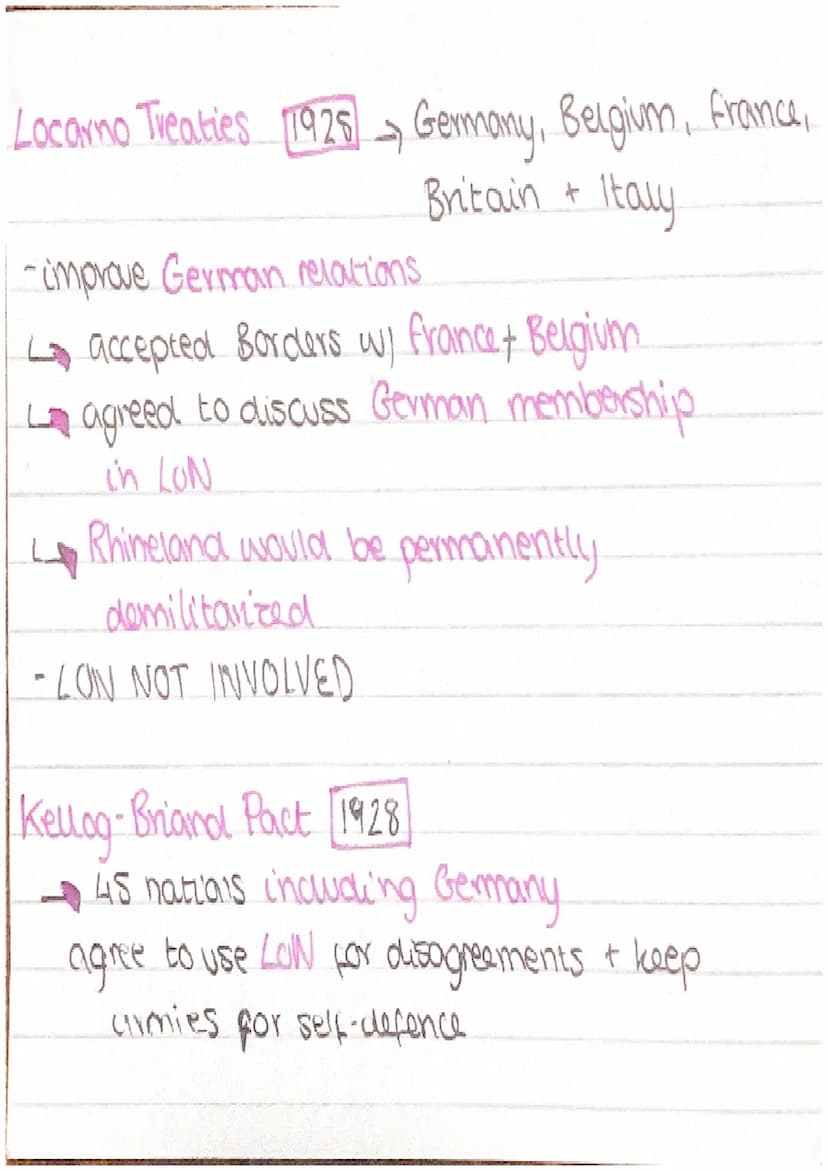 Locarno Treaties 1925 → Germany, Belgium, France,
Britain + Italy
- improve German relations
↳ accepted Borders w/ France + Belgium
↳ agreed to discuss German membership
in LoN
↳ Rhineland would be permanently
demilitarized
- LON NOT INVOLVED
Kellog-Briand Pact 1928
→ 45 nations including Germany
agree to use LoN for disagreements + keep
armies for self-defence